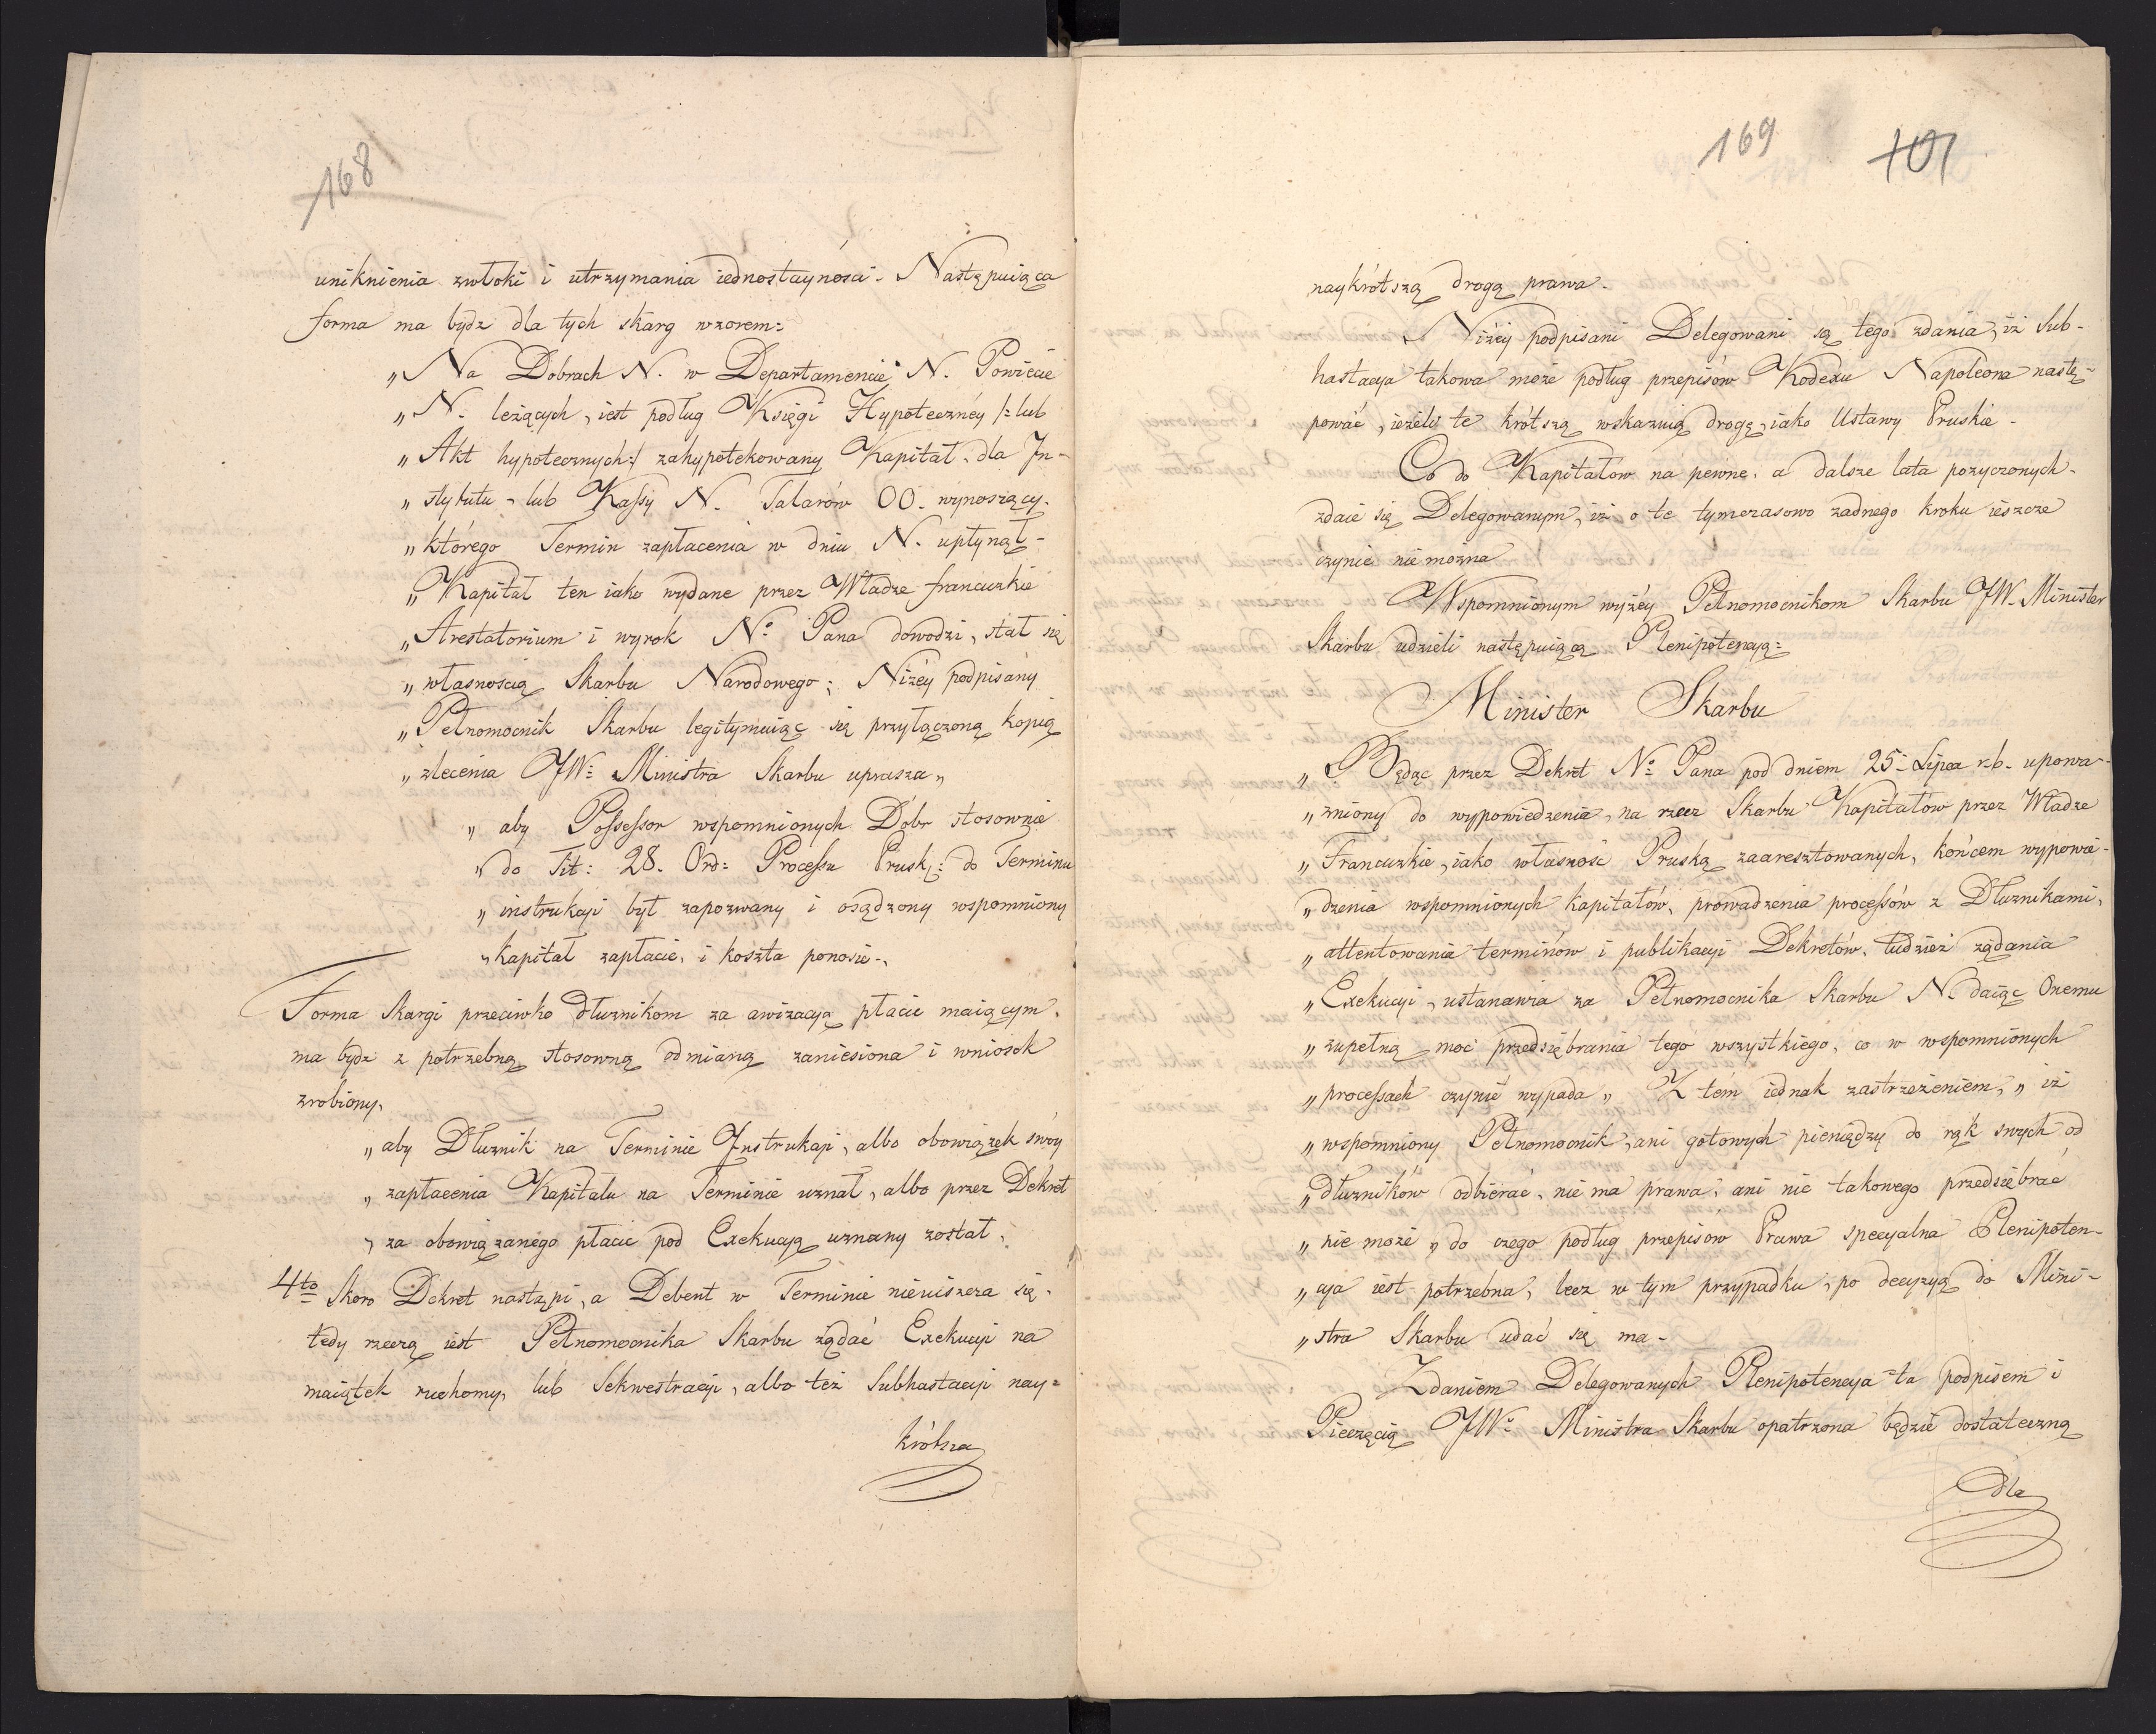 168
uniknienia zwłoki i utrzymania iednostayności. Następuiąca
forma ma bydź dla tych skarg wzorem:
„Na Dobrach N. w Departamencie N. Powiecie
„N. leżących, iest podług Księgi Hypoteczney /: lub
„Akt hypotecznych :/ zahypotekowany Kapitał dla In-
„stytutu - lub Kassy N. Talarów 00. wynoszący.
„którego Termin zapłacenia w dniu N. upłynął-
„Kapitał ten iako wydane przez Władze francuzkie
„Arestatorium i wyrok No Pana dowodzi, stał się
„własnością Skarbu Narodowego; Niżey podpisany
„Pełnomocnik Skarbu legitymuiąc się przyłączoną kopią
„zlecenia JW: Ministra Skarbu uprasza„
„aby Possessor wspomnionych Dóbr stosownie
„do Tit: 28. Ord: Processu Prusk: do Terminu
„instrukcyi był zapozwany i osądzony wspomniony
„kapitał zapłacić, i koszta ponosić-,
Forma Skargi przeciwko Dłużnikom za awizacyą płacić maiącym.
ma bydz z potrzebną stosowną odmianą zaniesiona i wniosek
zrobiony,
„aby Dłużnik na Terminie Instrukcyi, albo obowiązek swóy
„zapłacenia Kapitału na Terminie uznał, albo przez Dekret
„za obowiązanego płacić pod Exekucyą uznany został.
4to Skoro Dekret nastąpi, a Debent w Terminie nieuiszcza się.
tedy rzeczą iest Pełnomocnika Skarbu żądać Exekucyi na
maiątek ruchomy, lub Sekwestracyi, albo też Subhastacyi nay=
krótszą
169
101
naykrótszą drogą prawa.
Niżéy podpisani Delegowani są tego zdania, iż Sub-
hastacya takowa może podług przepisów Kodexu Napoleona nastę-
pować, ieżeli te krótszą wskazuią drogę, iako Ustawy Pruskie.
Co do Kapitałów na pewne, a dalsze lata pożyczonych-
zdaie się Delegowanym, iż o te tymczasowo żadnego kroku ieszcze
czynić nie można
Wspomnionym wyżey Pełnomocnikom Skarbu JW. Minister
Skarbu udzieli następuiącą Plenipotencyą:
Minister Skarbu
„Będąc przez Dekret No Pana pod dniem 25. Lipca r.b. upowa-
„żniony do wypowiedzenia, na rzecz Skarbu Kapitałów przez Władze
„Francuzkie, iako własność Pruską zaaresztowanych, końcem wypowie-
„dzenia wspomnionych kapitałów, prowadzenia processów z Dłużnikami,
„attentowania terminów i publikacyi Dekretów, tudzież żądania
„Exekucyi, ustanawia za Pełnomocnika Skarbu N. daiąc Onemu
„zupełną moc przedsiębrania tego wszystkiego, co w wspomnionych
„processach czynić wypada„ Z tém iednak zastrzeżeniem, „iż
„wspomniony Pełnomocnik, ani gotowych pieniędzy do rąk swych od
„dłużników odbierać, nie ma prawa, ani nic takowego przedsiębrać
„nie może „do czego podług przepisów Prawa specyalna Plenipoten-
„cya iest potrzebna, lecz w tym przypadku, po decyzyą do Mini-
„stra Skarbu udać się ma-
Zdaniem Delegowanych Plenipotencya ta podpisem i
Pieczęcią JW: Ministra Skarbu opatrzona będzie dostateczną
dla